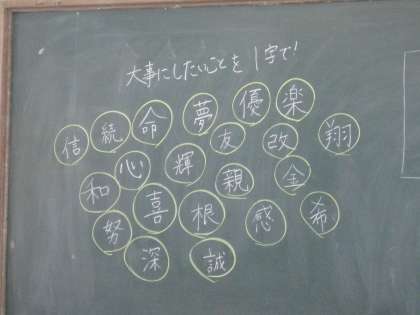 大事にしたいことを1字で!
信 続 命 夢 優 楽
友 改 翔
和 心 輝 親 金
努 喜 根 感 希
深 誠